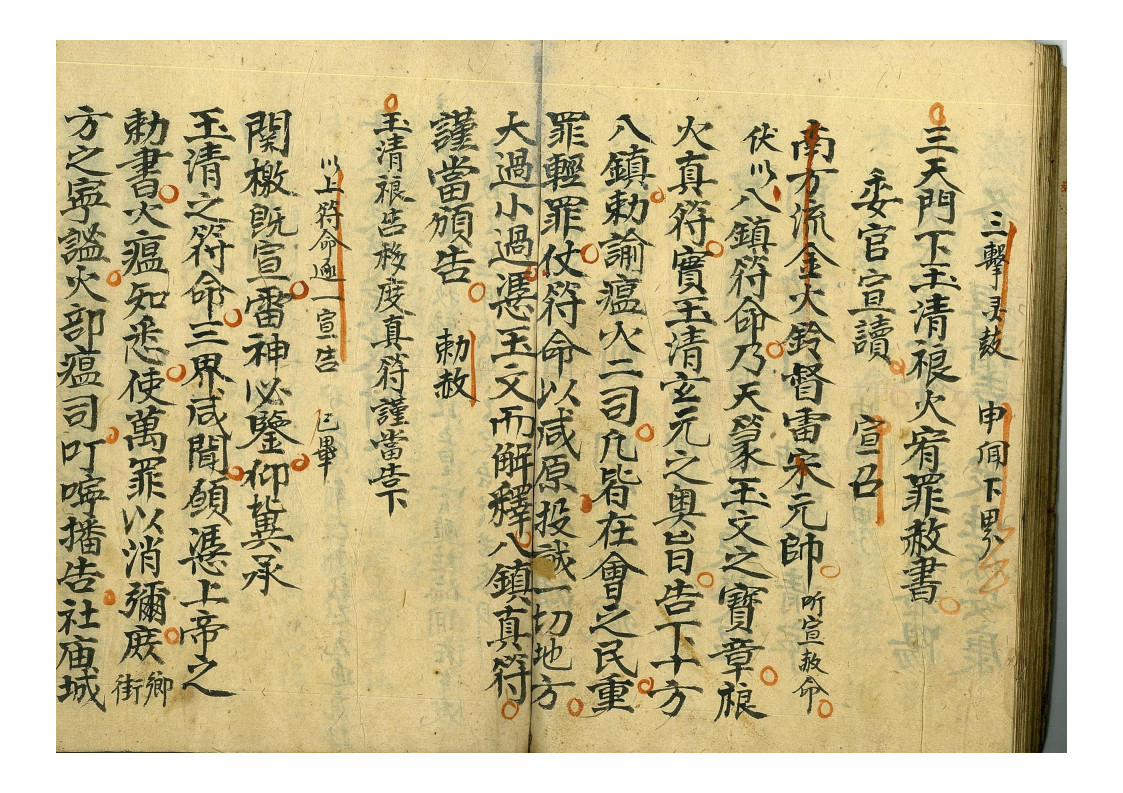 三擊灵鼓 申聞下界
三天門下玉清禳火宥罪赦書
委官宣讀 宣召
南方流金火鈴督雷宋元帥 听宣赦命
伏以八鎮符命乃天篆玉文之寶章禳
火真符實玉清玄元之奧旨告下十方
八鎮勅諭瘟火二司凡皆在會之民重
罪輕罪仗符命以咸原投誠一切地方
大過小過憑玉文而解釋八鎮真符
謹當頒告 勅赦
玉清禳告移度真符謹當告下
以上符命逓一宣告 已畢
関檄既宣雷神必鑒仰兾承
玉清之符命三界咸聞願憑上帝之
勅書火瘟知悉使萬罪以消彌庻鄉街
方之寧謐火部瘟司叮嚀播告社庙城